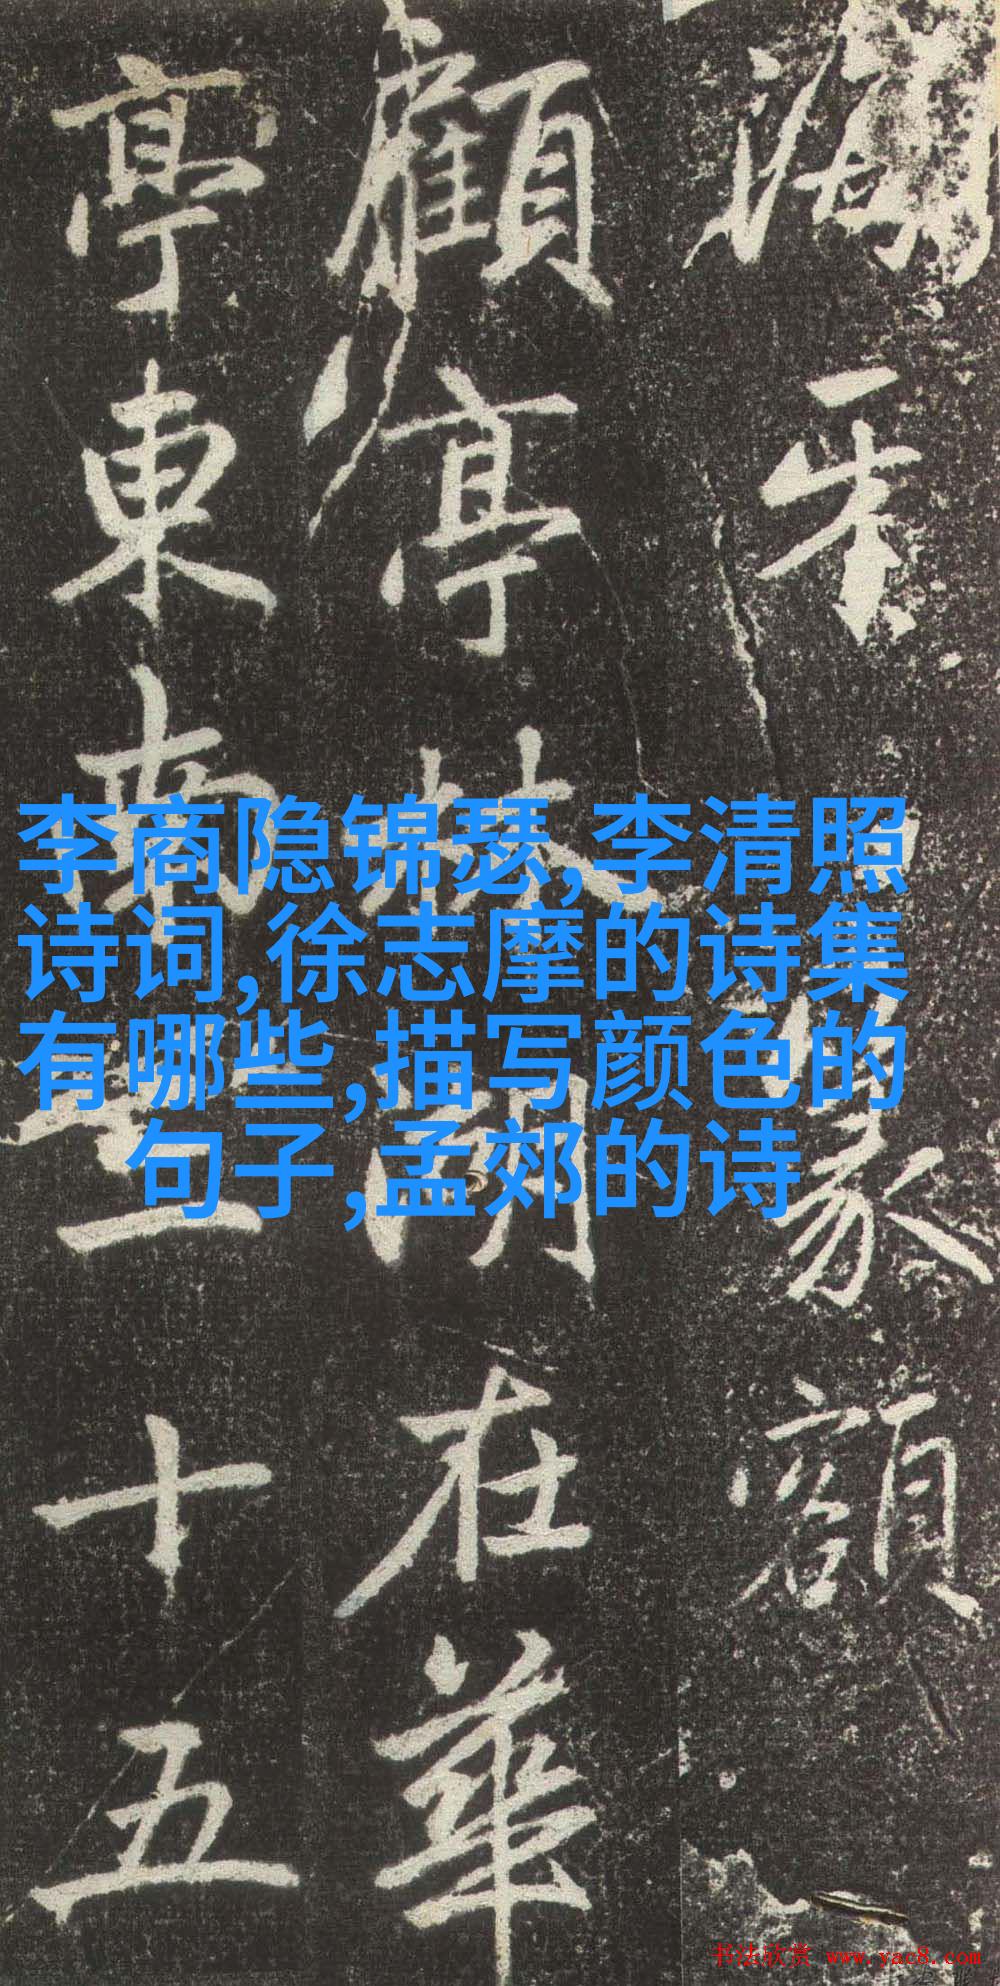 篆額
顧亭林湖在華
亭東南三十五
李商隐锦瑟,李清照
诗词,徐志摩的诗集
有哪些,描写颜色的
句子,孟郊的诗
书法欣赏 www.yac8.com